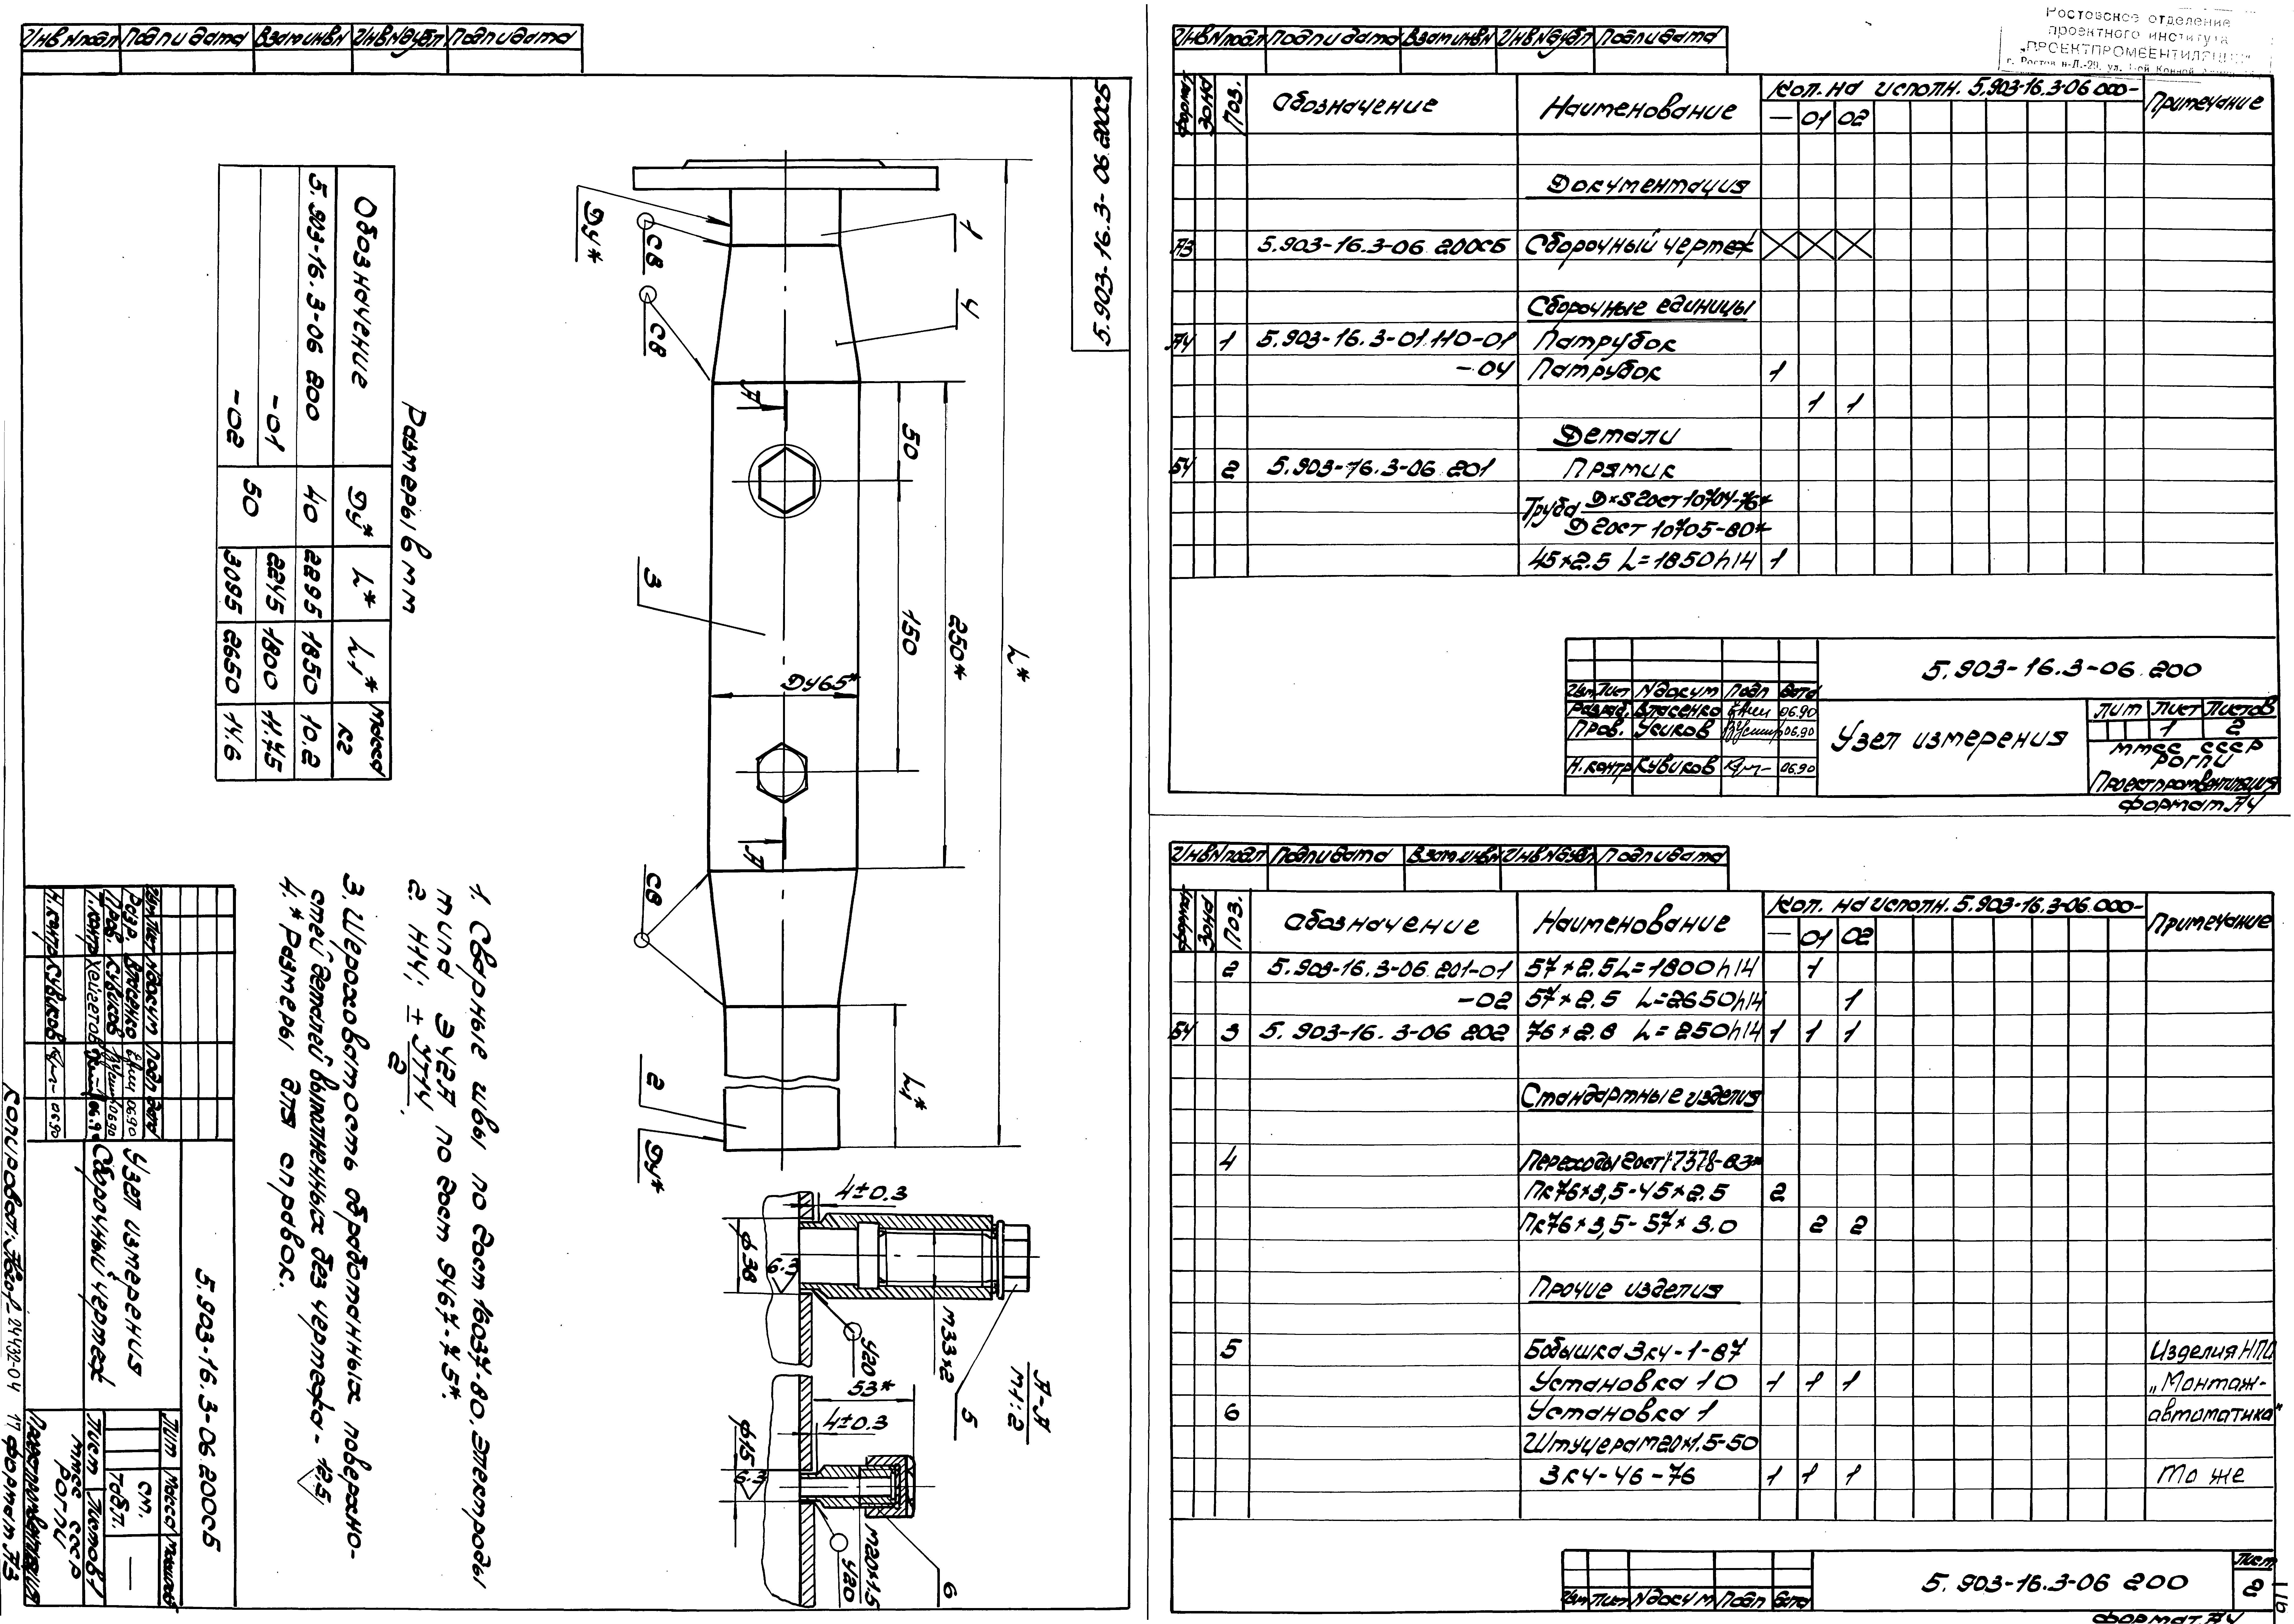 Инв N подл Подп и дата Взам инв N Инв N дубл Подп и дата
5.903-16.3-06 200СБ
1
4
Ду*
СВ
СВ
А
50
3
150
250*
L*
Ду65*
А
СВ
L₁*
2
Ду*
Размеры в мм
Обозначение Ду* L* L₁* Масса кг
5.903-16.3-06 800 40 2295 1850 10.2
-01 50 2245 1800 11.45
-02 3095 2650 14.6
А-А
М1:2
4±0.3
ф38
6.3
У20
М33×2
5
53*
4±0.3
ф15
6.3
У20
М20×1.5
6
1. Сварные швы по гост 16037-80. Электроды
типа Э42А по гост 9467-75*.
2 Н14; ± JT14/2.
3. Шероховатость обработанных поверхно-
стей деталей выполненных без чертежа - 12.5
4.* Размеры для справок.
5.903-16.3-06 200СБ
Узел измерения
Сборочный чертеж
Лит Масса Масштаб
см. табл. —
Лист Листов 1
Изм Лист N докум Подп Дата
Разр. Власенко 06.90
Пров. Кувиков 06.90
Т.контр 06.9
Н.контр Кувиков 06.90
ммсс СССР
РОГПИ
Проектпромвентиляция
Копировал: 24432-04 17 Формат А3
Ростовское отделение
проектного института
„ПРОЕКТПРОМВЕНТИЛЯЦИЯ"
Инв N подл Подп и дата Взам инв N Инв N дубл Подп и дата
Формат Зона Поз. Обозначение Наименование Кол. на исполн. 5.903-16.3-06 000- Примечание
— 01 02
Документация
А3 5.903-16.3-06 200СБ Сборочный чертеж
Сборочные единицы
А4 1 5.903-16.3-01.110-01 Патрубок
-04 Патрубок 1
1 1
Детали
БЧ 2 5.903-16.3-06 201 Прямик
Труба Д×S гост 10704-76*
Д гост 10705-80*
45×2.5 L=1850h14 1
5.903-16.3-06.200
Изм Лист N докум Подп Дата
Разраб. Власенко 06.90
Пров. Усиков 06.90
Н.контр Кувиков 06.90
Узел измерения
Лит Лист Листов
1 2
ммсс СССР
РОГПИ
Проектпромвентиляция
Формат А4
Инв N подл Подп и дата Взам инв N Инв N дубл Подп и дата
Формат Зона Поз. Обозначение Наименование Кол. на исполн. 5.903-16.3-06.000- Примечание
— 01 02
2 5.903-16.3-06.201-01 57×2.5 L=1800h14 1
-02 57×2.5 L=2650h14 1
БЧ 3 5.903-16.3-06 202 76×2.8 L=250h14 1 1 1
Стандартные изделия
4 Переходы гост 17378-83*
Пк76×3,5-45×2.5 2
Пк76×3,5-57×3.0 2 2
Прочие изделия
5 Бобышка ЗК4-1-87 Изделия НПО
Установка 10 1 1 1 „Монтаж-
6 Установка 1 автоматика"
Штуцера М20×1.5-50
ЗК4-46-76 1 1 1 То же
Изм Лист N докум Подп Дата
5.903-16.3-06 200
Лист
2
Формат А4